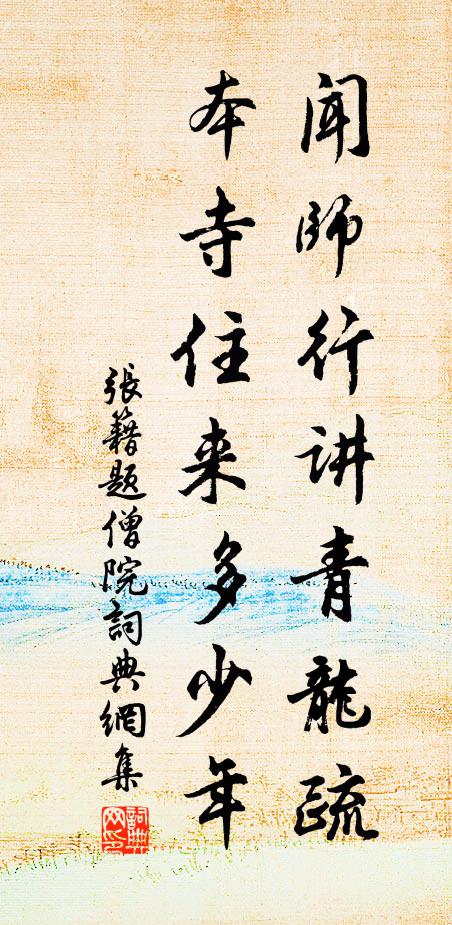 闻师行讲青龍疏
本寺住来多少年
張籍題僧院詞典網集
詞典网印